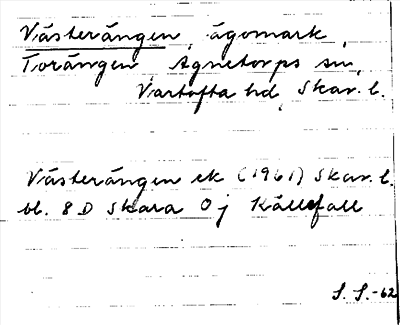 Västerängen, ägomark,
Torängen Agnetorps sn,
Vartofta hd, Skar. l.
Västerängen ek (1961) Skar. l.
bl. 8 D Skara 0 j Källefall
S. S. -62